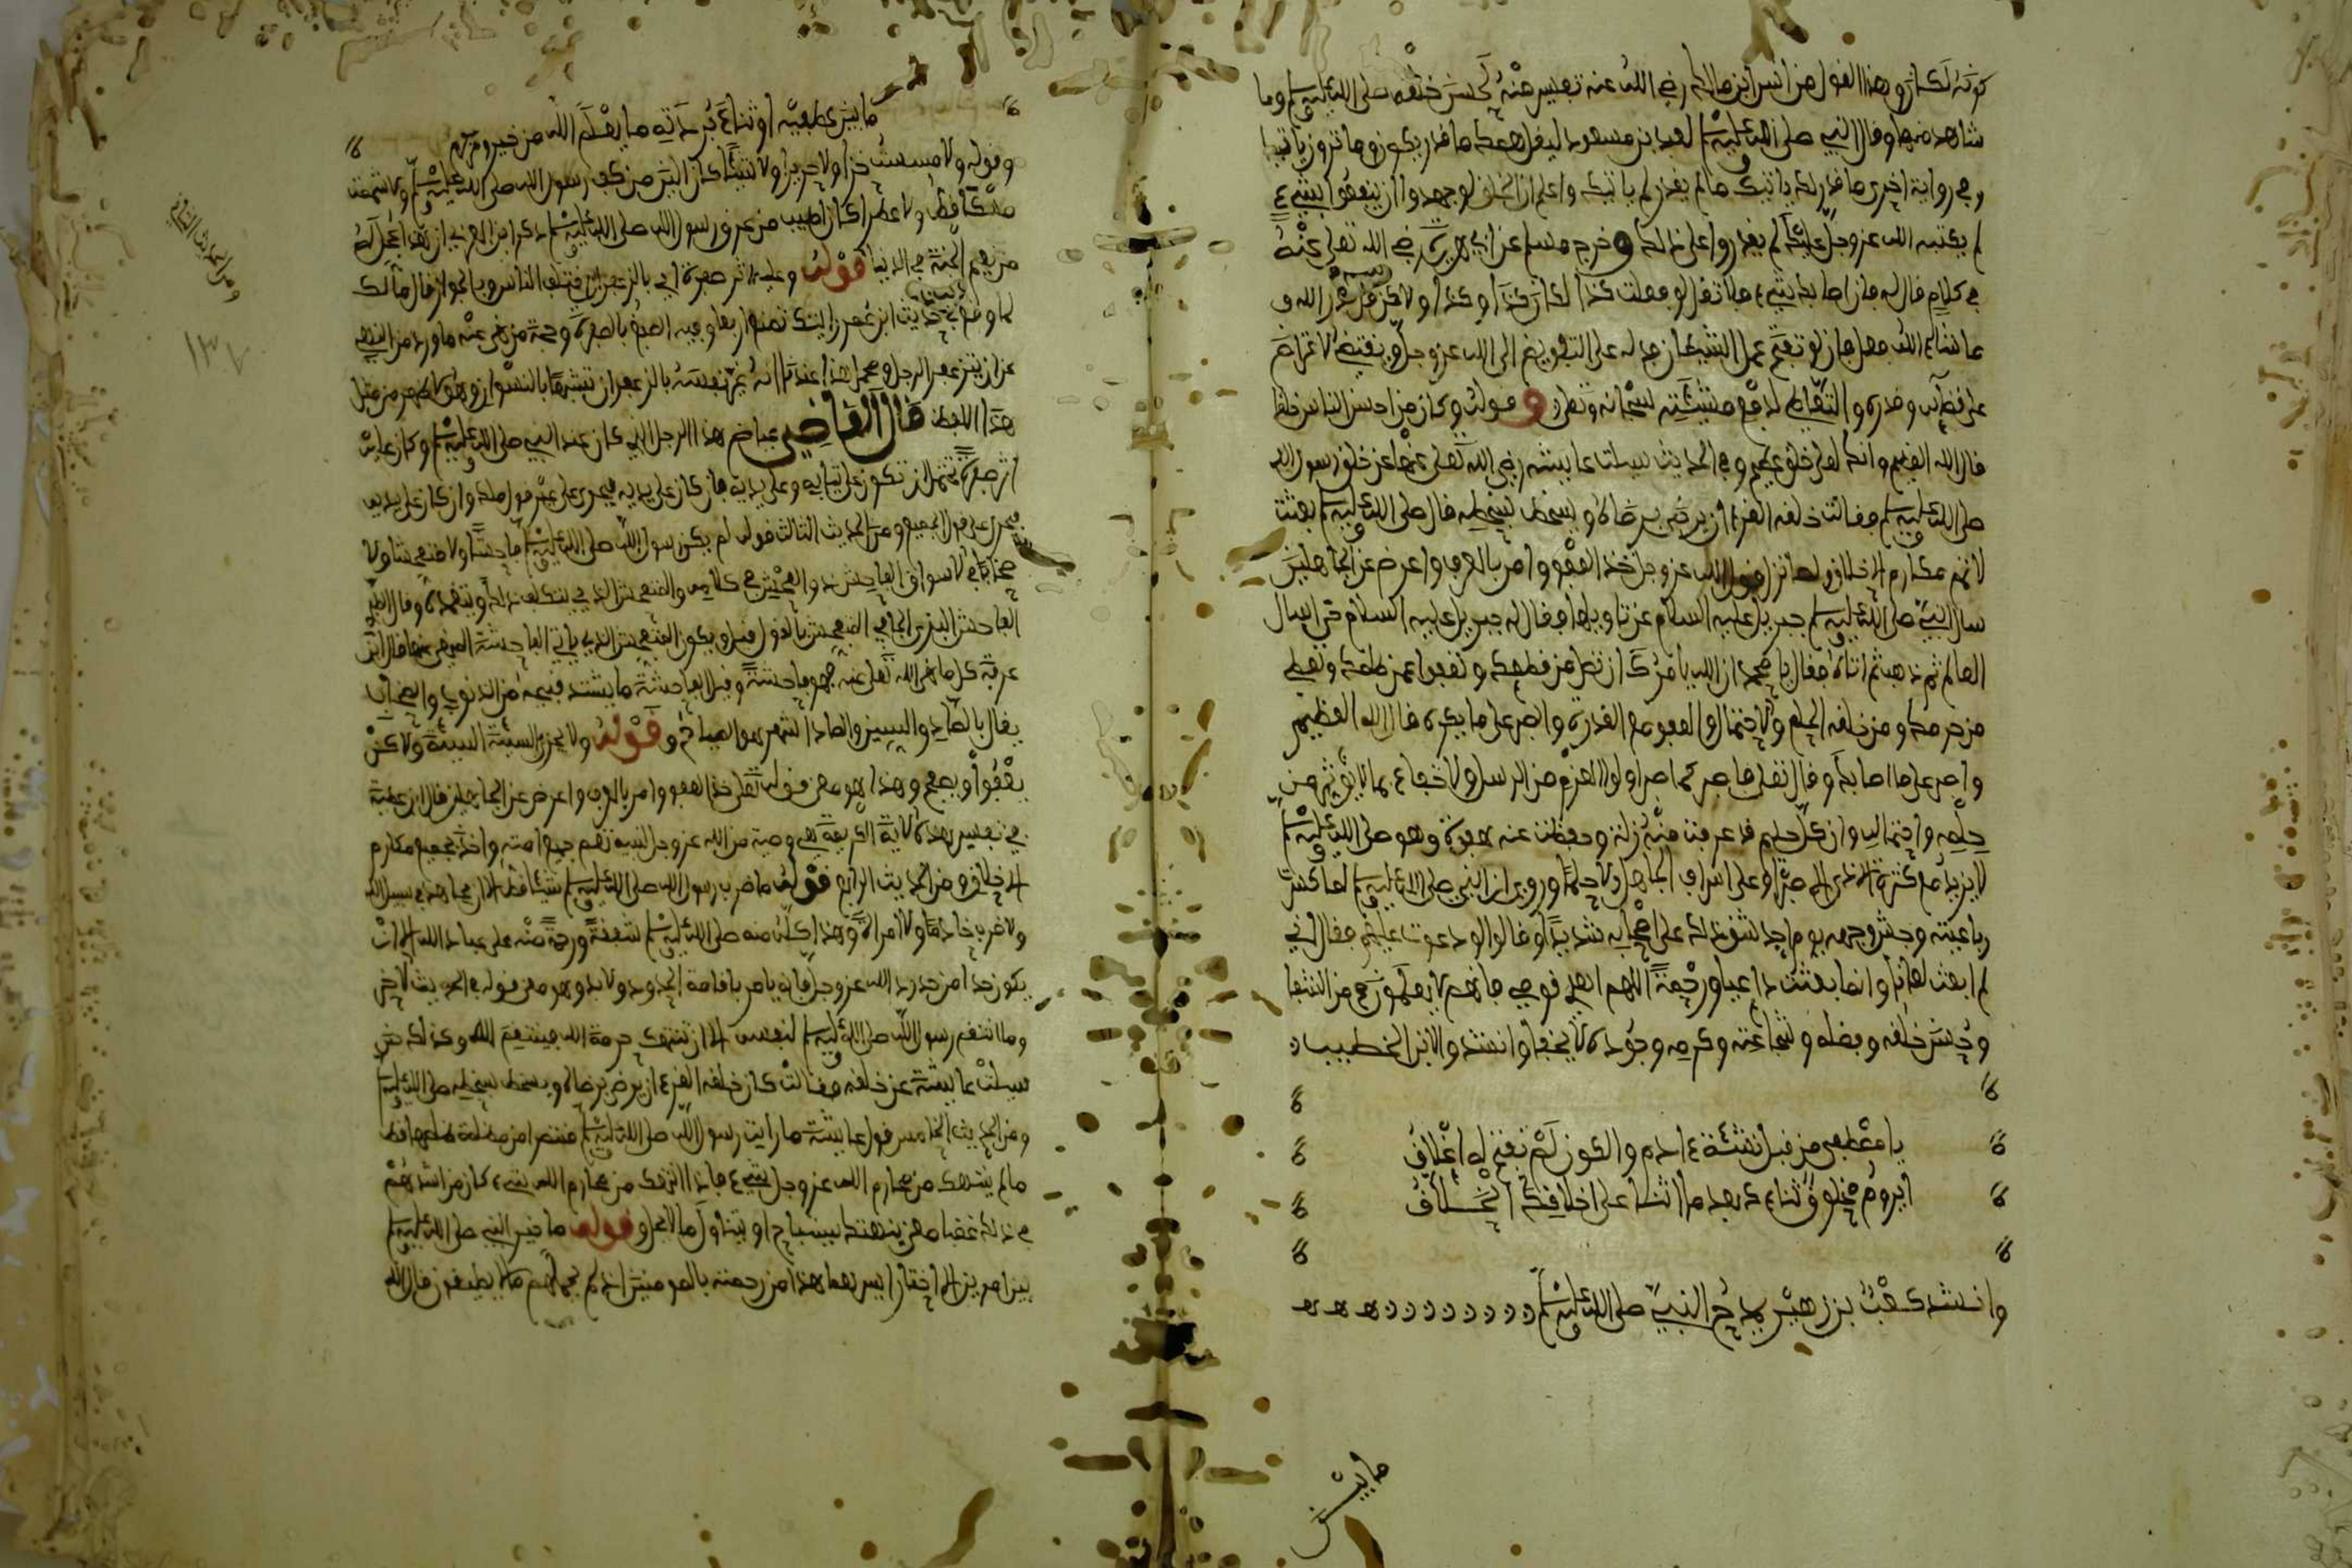 كونه لكان وهذا القول من انس ابن مالك رضي الله عنه تفسير منه لحسن خلقه صلى الله عليه وسلم وما
شاهد منها وقال النبي صلى الله عليه وسلم لعبد بن مسعود ليقل همك ما قدر يكون وما ترزق ياتيك
وفي رواية اخرى ما قدر لك ياتيك وما لم يقدر لم ياتيك واعلم ان الخلق لو جهدوا ان ينفعوا بشيء
لم يكتبه الله عز وجل عليك لم يقدروا على ذلك وخرج مسلم عن ابي هريرة رضي الله تعلى عنه
في كلام قال له فان اصابك شيء فلا تقل لو فعلت كذا لكان كذا وكذا ولاكن قل قدر الله و
ما شاء الله فعل فان لو تفتح عمل الشيطان فدله على التفويض الى الله عز وجل ونفيض الاعتراض
على قضائه وقدره والتعاطي لدفع مشيئته سبحانه وتعلى وقوله وكان من احسن الناس خلقا
قال الله العظيم وانك لعلى خلق عظيم وفي الحديث سيلت عايشه رضي الله تعلى عنها عن خلق رسول الله
صلى الله عليه وسلم فقالت خلقه القرءان يرضى برضاه ويسخط لسخطه قال صلى الله عليه وسلم بعثت
لاتمم مكارم الاخلاق ولما نزل قول الله عز وجل خذ العفو وامر بالعرف واعرض عن الجاهلين
سال النبي صلى الله عليه وسلم جبريل عليه السلام عن تاويلها فقال له جبريل عليه السلام حتى اسال
العالم ثم ذهب ثم اتاه فقال يا محمد ان الله يامرك ان تصل من قطعك وتعفوا عمن ظلمك وتعطي
من حرمك ومن خلقه الحلم والاحتمال والعفو مع القدرة والصبر على ما يكره قال الله العظيم
واصبر على ما اصابك وقال تعلى فاصبر كما صبر اولوا العزم من الرسل ولا خفاء بما لا يؤثر من
حلمه واحتماله وان كل حليم قد عرفت منه زلة وحفظت عنه هفوة وهو صلى الله عليه وسلم
لا يزيد مع كثرة الاذى الا صبرا وعلى اسراف الجاهل الا حلما وروي ان النبي صلى الله عليه وسلم لما كسرت
رباعيته وشج وجهه يوم احد شق ذلك على اصحابه شديدا وقالوا لو دعوت عليهم فقال اني
لم ابعث لعانا وانما بعثت داعيا ورحمة اللهم اهد قومي فانهم لا يعلمون في من الشفا
وحسن خلقه وفضله وشجاعته وكرمه وجوده لا يخفى وانشدوا لابن الخطيب
يا مصطفى من قبل نشئة ءادم والكون لم تفتح له اغلاق
ايروم مخلوق ثناءك بعد ما اثنى على اخلاقك الخلاق
وانشد كعب بن زهير يمدح النبي صلى الله عليه وسلم
مايش
ما بين عطفيه اوثناء بردته ما يعلم الله من خير ومن كرم
وقوله ولا مسست خزا ولا حريرا ولا شيئا كان الين من كف رسول الله صلى الله عليه وسلم ولا شممت
مسكا قط ولا عطرا كان اطيب من عرق رسول الله صلى الله عليه وسلم ذكر ابن العربي ان هذا عجل له
من نعيم الجنة في الدنيا قوله وعليه اثر صفرة اي بالزعفران اختلف الناس وبالجواز قال مالك
لما وقع في حديث ابن عمر رايتك تصنع اربعا وفيه الصبغ بالصفرة وحجة من نهى عنه ما ورد من النهي
عن ان يتزعفر الرجل ومحمل هذا عندنا انه يعم نفسه بالزعفران تشبها بالنسوان وهو الاظهر من مثل
هذا اللفظ قال القاضي عياض هذا الرجل الذي كان عند النبي صلى الله عليه وسلم وكان عليه
اثر صفرة يحتمل ان تكون على ثيابه وعلى بدنه فان كان على ثيابه فيجري على غير قول مالك وان كان على بدنه
فيجري على قول الجميع ومن الحديث الثالث قوله لم يكن رسول الله صلى الله عليه وسلم فاحشا ولا متفحشا ولا
صخابا في الاسواق الفاحش ذو الفحش في كلامه والمتفحش الذي يتكلف ذلك ويتعمده وقال الطبري
الفاحش البذي الجافي المتفحش بالقول قيل ويكون المتفحش الذي ياتي الفاحشة المنهي عنها قال ابن
عرفة كل ما نهى الله تعلى عنه فهو فاحشة وقيل الفاحشة ما يشتد قبحه من الذنوب والصخاب
يقال بالصاد والسين والصاد اشهر هو الصياح وقوله ولا يجزي السيئة السيئة ولاكن
يعفوا ويصفح وهذا هو معنى قوله تعلى خذ العفو وامر بالعرف واعرض عن الجاهلين قال ابن عطية
في تفسير هذه الاية الكريمة هي وصية من الله عز وجل لنبيه تعم جميع امته واخذ بجميع مكارم
الاخلاق ومن الحديث الرابع قوله ما ضرب رسول الله صلى الله عليه وسلم شيئا قط الا ان يجاهد في سبيل الله
ولا ضرب خادما ولا امراة وهذا كله منه صلى الله عليه وسلم شفقة ورحمة منه على عباد الله الا ان
يكون حدا من حدود الله عز وجل فانه يامر باقامة الحدود ولا بد وهو معنى قوله في الحديث الاخر
وما انتقم رسول الله صلى الله عليه وسلم لنفسه الا ان تنتهك حرمة الله فينتقم لله وكذلك حين
سيلت عايشة عن خلقه فقالت كان خلقه القرءان يرضى برضاه ويسخط بسخطه صلى الله عليه وسلم
ومن الحديث الخامس قول عايشة ما رايت رسول الله صلى الله عليه وسلم منتصرا من مظلمة ظلمها قط
ما لم ينتهك من محارم الله عز وجل شيء فاذا انتهك من محارم الله شيء كان من اشدهم
في ذلك غضبا معن ينتهك يستباح او يتناول ما لا يحل وقوله ما خير النبي صلى الله عليه وسلم
بين امرين الا اختار ايسرهما هذا من رحمته بالمومنين اذ لم يحملهم ما لا يطيقون قال الله
ومن الحديث الثالث
١٣٧